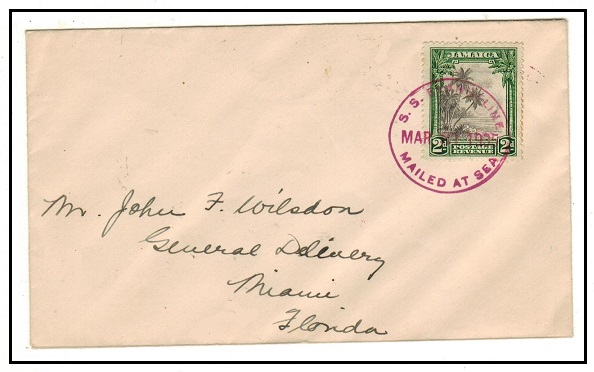 JAMAICA
2d POSTAGE 2d
REVENUE
S. S.
LINE
MAR
MAILED AT SEA
Mr. John F. Wilsdon
General Delivery
Miami
Florida